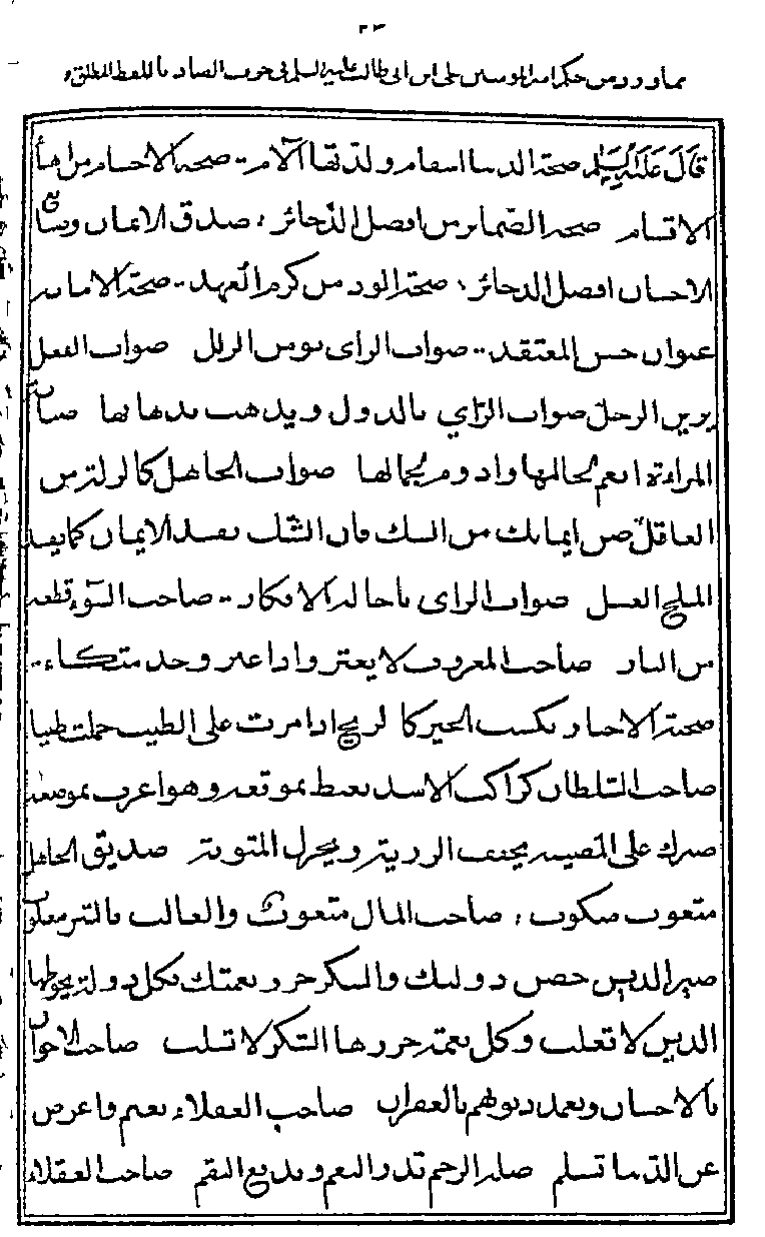 مما ورد من حكم امير المومنين علي ابن ابي طالب عليه السلم في حرف الصاد باللفظ المطلق
قَالَ عَلَيْهِ السَّلَم صحة الدنيا اسقام ولذتها آلام صحة الاجسام من اهنأ
الاقسام صحة الضماير من افضل الذخائر صدق الايمان وصنايع
الاحسان افضل الدخائر صحة الود من كرم العهد صحة الامانه
عنوان حسن المعتقد صواب الراى يومن الزلل صواب الفعل
يزين الرجل صواب الرّاي بالدول ويذهب بذهابها صيانة
المراءة انعم لحالها وادوم لجمالها صواب الجاهل كالزلة من
العاقل صن ايمانك من الشك فان الشّك يفسد الايمان كما يفسد
الملح العسل صواب الراى باجالة الافكار صاحب السّوء قطعه
من النار صاحب المعروف لا يعثر واذا عثر وجد متكاء
صحبة الاخيار تكسب الخير كالريح اذا مرت على الطيب حملت طيبا
صاحب السّلطان كراكب الاسد يغبط بموقعه وهو اعرف بموضعه
صبرك على المصيبه يخفف الرزية ويجزل المثوبة صديق الجاهل
متعوب منكوب صاحب المال متعوب والغالب بالشر مغلوب
صير الدين حصن دولتك والشكر حرز نعمتك فكل دولة يحوطها
الدين لا تغلب وكل نعمة حرزها الشكر لا تسلب صاحب الاخوان
بالاحسان وتغمد ذنوبهم بالغفران صاحب العقلاء تغنم واعرض
عن الدّنيا تسلم صلة الرحم تدر النعم وتدفع النقم صاحب العقلاء